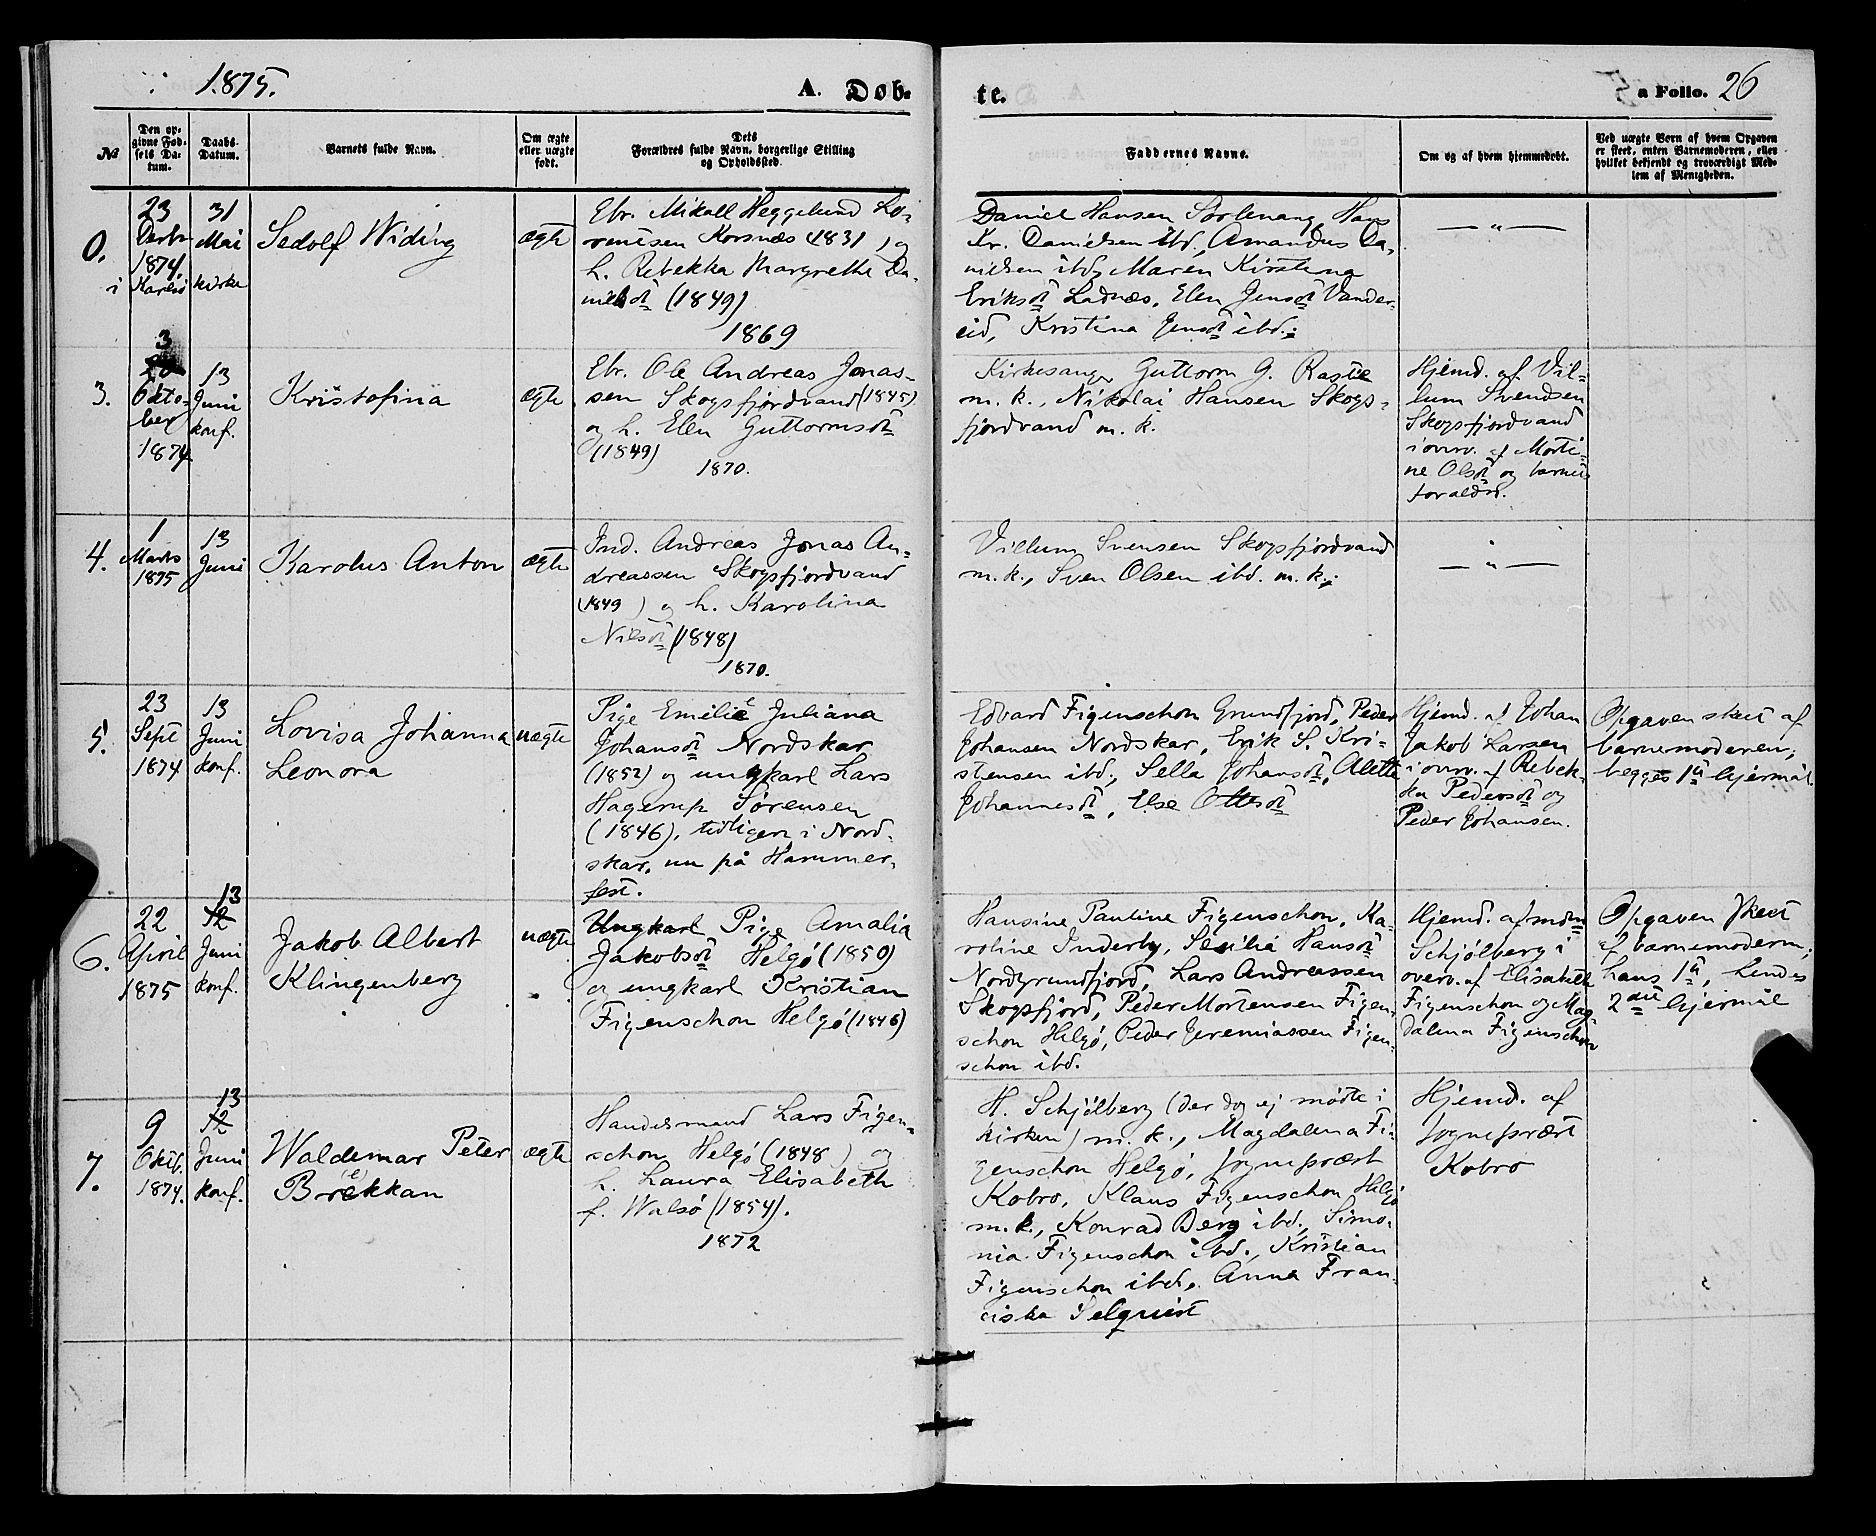 1875.
A. Døb-
te.
a Folio. 26
№
Den op-
givne Fød-
sels Da-
tum.
Daabs-
Datum.
Barnets fulde Navn.
Om ægte
eller uægte
født.
Dets
Forældres fulde Navn, borgerlige Stilling
og Opholdssted.
Faddernes Navne.
Om og af hvem hjemmedøbt.
Ved uægte Børn af hvem Opgaven
er skeet, enten Barnemoderen, eller
hvilket bekjendt og troværdigt Med-
lem af Menigheden.
0.
i
23
Decbr
1874.
Karlsö
31
Mai
kirke
Sedolf Widing
ægte
Ebr. Mikall Heggelund Lo-
rentsen Korsnæs 1831, og
h. Rebekka Margrethe Da-
nielsdt (1849)
1869
Daniel Hansen Sorlenang, Hans
Kr. Danielsen ibd., Amandus Da-
nielsen ibd, Maren Kirstina
Eriksdt Ladnæs, Elen Jensdt Vander-
eid, Kristina Jensdt ibd.
— " —
3.
3
Okto-
ber
1874
13
Juni
konf.
Kristofina
ægte
Ebr. Ole Andreas Jonas-
sen Skogsfjordvand (1845)
og h. Elen Guttormsdt
(1849)
1870.
Kirkesanger Guttorm G. Raste
m. k., Nikolai Hansen Skogs-
fjordvand m. k.
Hjemd. af Vil-
lum Svendsen
Skogsfjordvand
i overv. af Morti-
ne Olsdt og barnets
foraldre.
4.
1
Marts
1875
13
Juni
Karolus Anton
ægte
Ind. Andreas Jonas An-
dreassen Skogsfjordvand
(1849) og h. Karolina
Nilsdt (1848)
1870.
Villum Svensen Skogsfjordvand
m. k., Sven Olsen ibd. m. k.
— " —
5.
23
Sept
1874
13
Juni
konf.
Lovisa Johanna
Leonora
uægte
Pige Emilie Juliana
Johansdt Nordskar
(1852) og ungkarl Lars
Hagerup Sørensen
(1846), tidligere i Nord-
skar, nu på Hammer-
fest.
Edvard Figenschou Grundfjord, Peder
Johansen Nordskar, Erik S. Kri-
stensen ibd., Sella Johansdt, Alette
Johannesdt, Else Ottesdt
Hjemd. af Johan
Jakob Larsen
i overv. af Rebek-
ka Pedersdt og
Peder Johansen.
Opgaven skeet af
barnemoderen;
begges 1ste lejermål.
6.
22
April
1875
13
12
Juni
konf.
Jakob Albert
Klingenberg
uægte
Ungkarl Pige Amalia
Jakobsdt Helgö (1850)
og ungkarl Kristian
Figenschou Helgö (1846)
Hansine Pauline Figenschou, Ka-
roline Inderby, Sesilie Hansdt
Nordgrundfjord, Lars Andreassen
Skogsfjord, Peder Mortensen Figen-
schou Helgö, Peder Jeremiassen Figen-
schou ibd.
Hjemd. af
Schjölberg i
overv. af Elisabeth
Figenschou og Mag-
dalena Figenschou
Opgaven skeet
af barnemoderen;
hans 1ste, hendes
2det lejermål
7.
9
Oktb.
1874.
13
12
Juni
konf.
Waldemar Peter
Brekkan
(e)
ægte
Handelsmand Lars Figen-
schou Helgö (1848) og
h. Laura Elisabeth
f. Walsö (1854).
1872
H. Schjölberg (der dog ej mødte i
kirken) m. k., Magdalena Fi-
genschou Helgö, Sogneprært
Kobro, Klaus Figenschou Helgö
m. k., Konrad Berg ibd., Simo-
nia Figenschou ibd., Kristian
Figenschou ibd., Anna Fran-
ciska Selquist
Hjemd. af
Sogneprært
Kobro